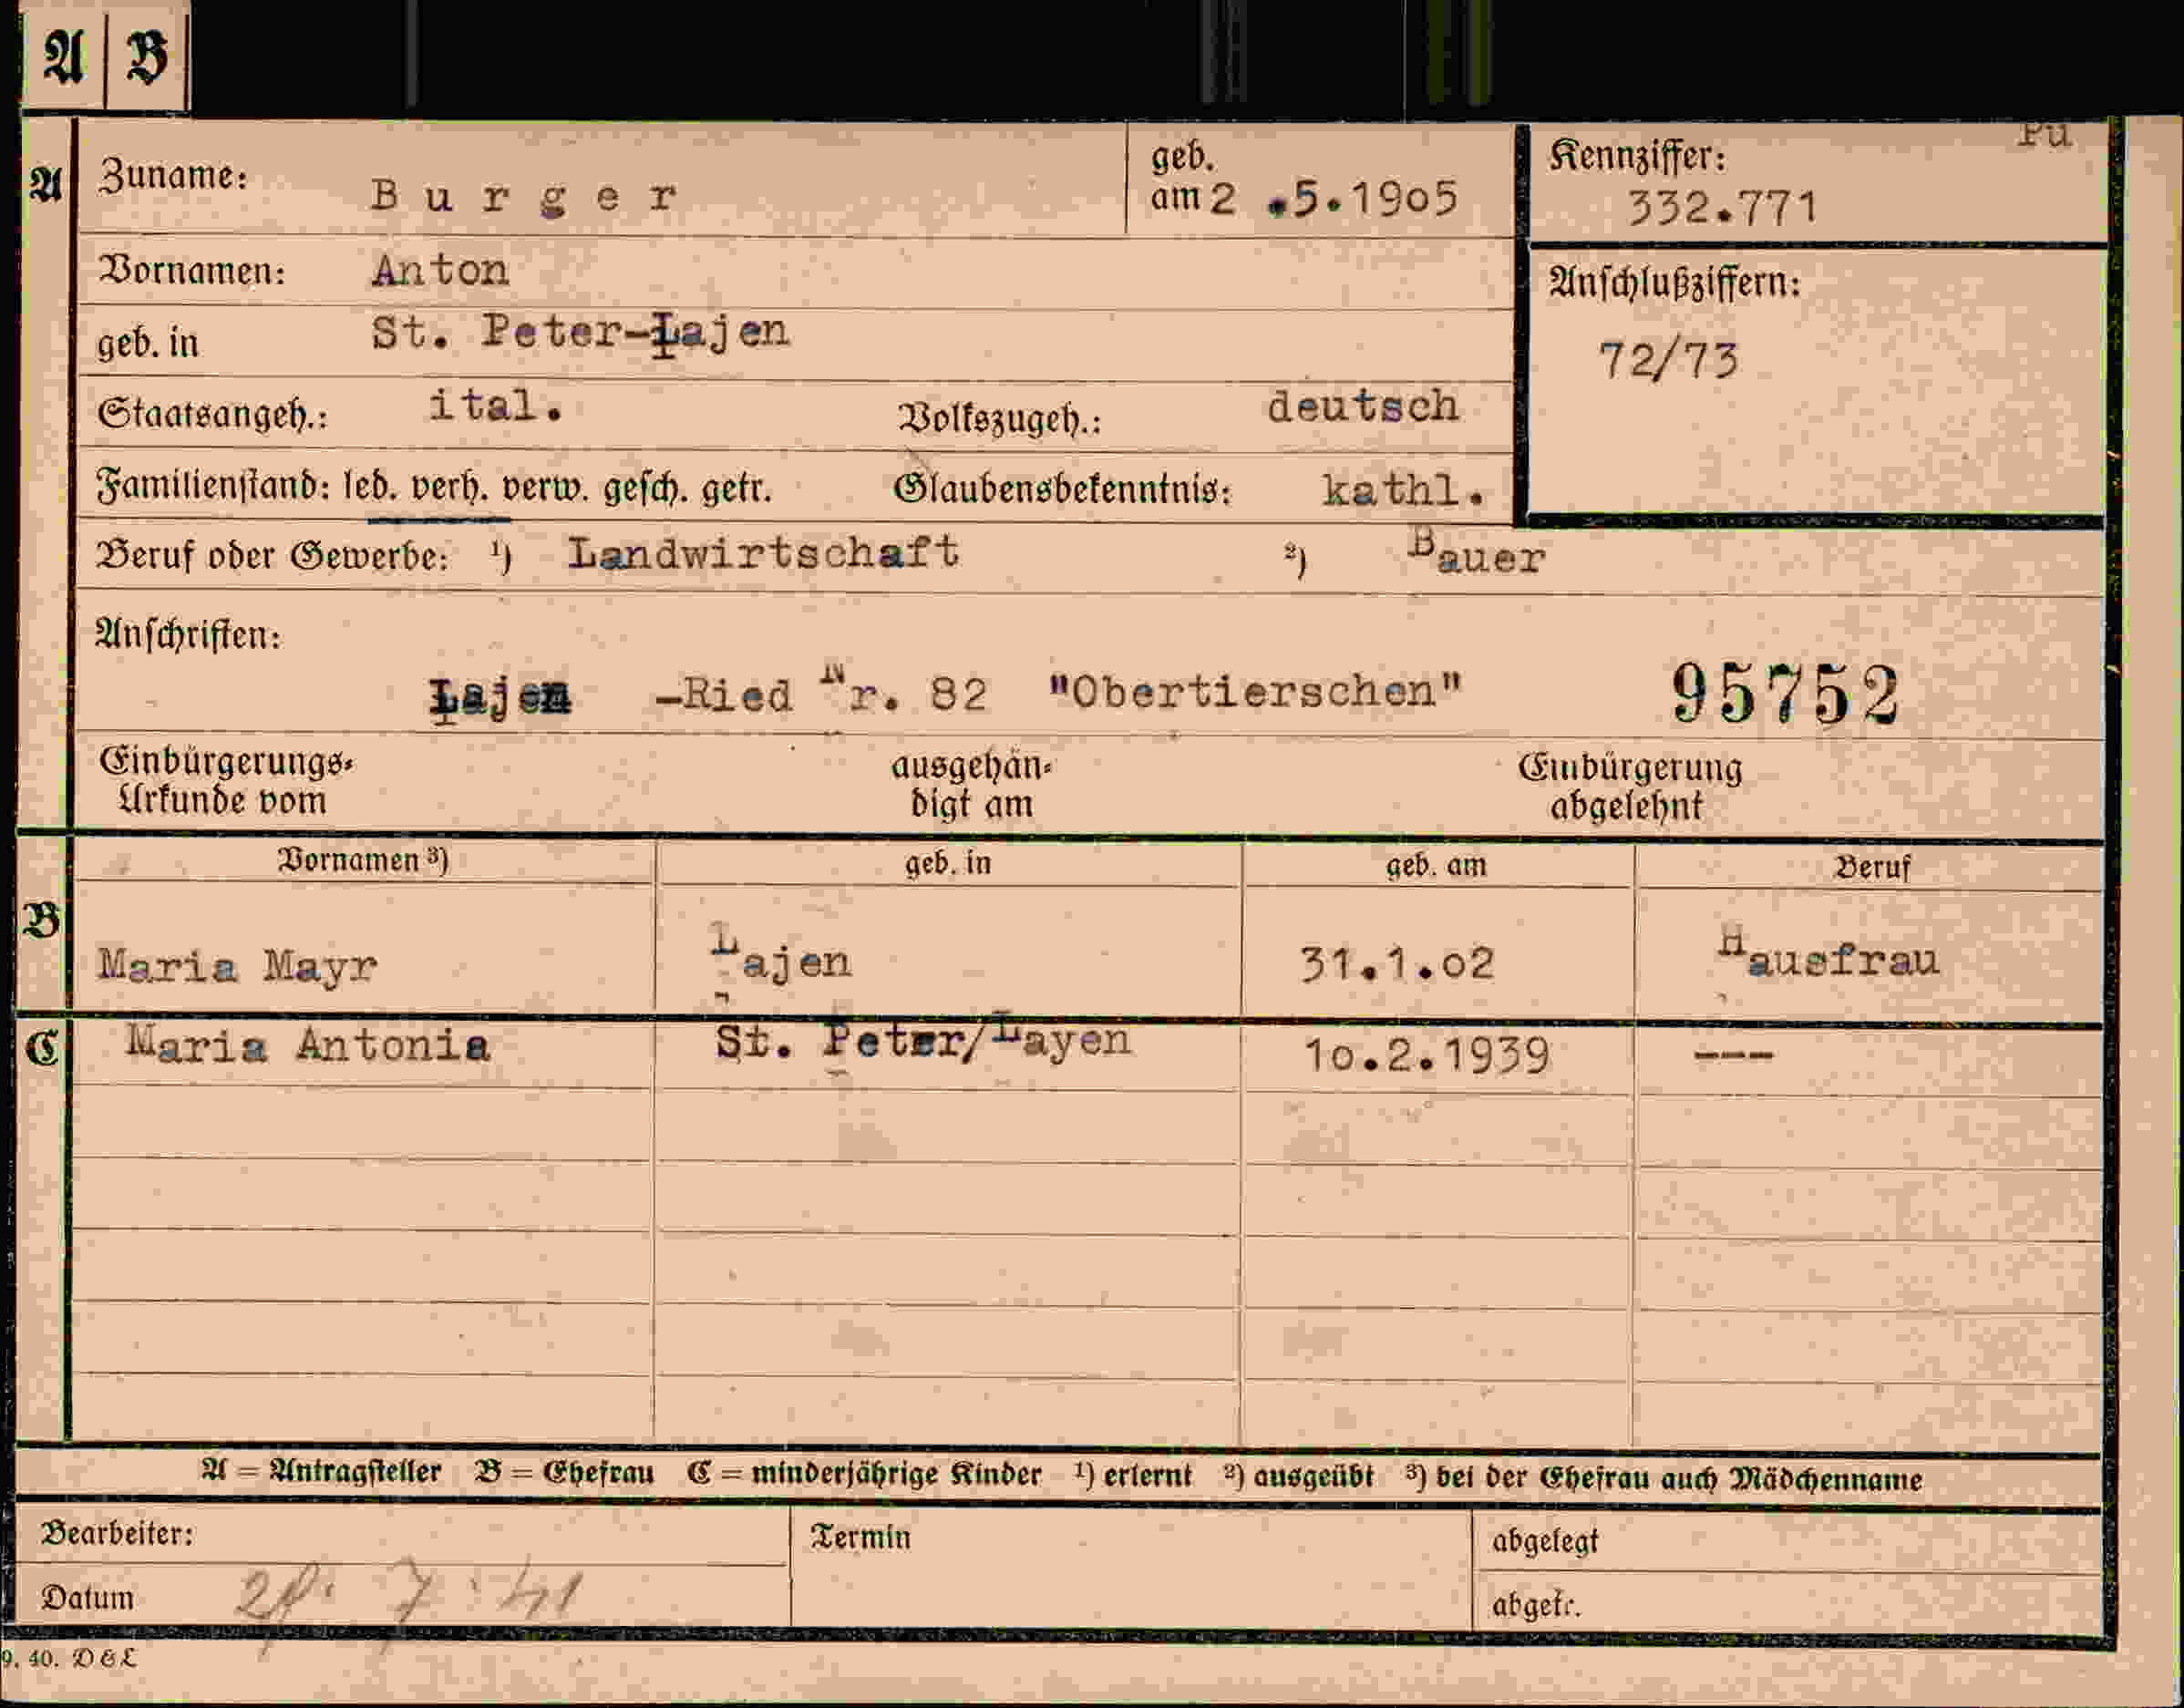 A B
A Zuname: Burger geb. am 2.5.1905 Kennziffer: 332.771 Pu
Vornamen: Anton
geb. in St. Peter-Lajen Anschlußziffern: 72/73
Staatsangeh.: ital. Volkszugeh.: deutsch
Familienstand: led. verh. verw. gesch. getr. Glaubensbekenntnis: kathl.
Beruf oder Gewerbe: ¹) Landwirtschaft ²) Bauer
Anschriften:
Lajen -Ried Nr. 82 "Obertierschen" 95752
Einbürgerungs-Urkunde vom ausgehändigt am Einbürgerung abgelehnt
Vornamen ³) geb. in geb. am Beruf
B Maria Mayr Lajen 31.1.02 Hausfrau
C Maria Antonia St. Peter/Layen 10.2.1939 ---
A = Antragsteller B = Ehefrau C = minderjährige Kinder ¹) erlernt ²) ausgeübt ³) bei der Ehefrau auch Mädchenname
Bearbeiter: Termin abgelegt
Datum 7.41 abgetr.
9. 40. D & L